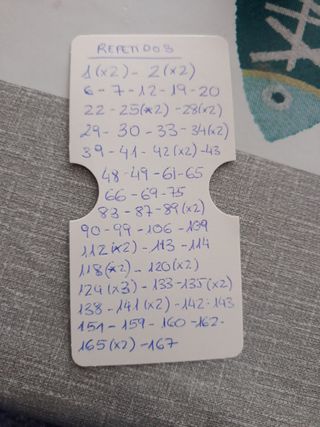 REPETIDOS
1(x2) - 2(x2)
6 - 7 - 12 - 19 - 20
22 - 25(x2) - 28(x2)
29 - 30 - 33 - 34(x2)
39 - 41 - 42(x2) - 43
48 - 49 - 61 - 65
66 - 69 - 75
83 - 87 - 89(x2)
90 - 99 - 106 - 109
112(x2) - 113 - 114
118(x2) - 120(x2)
124(x3) - 133 - 135(x2)
138 - 141(x2) - 142 - 143
151 - 159 - 160 - 162 -
165(x2) - 167